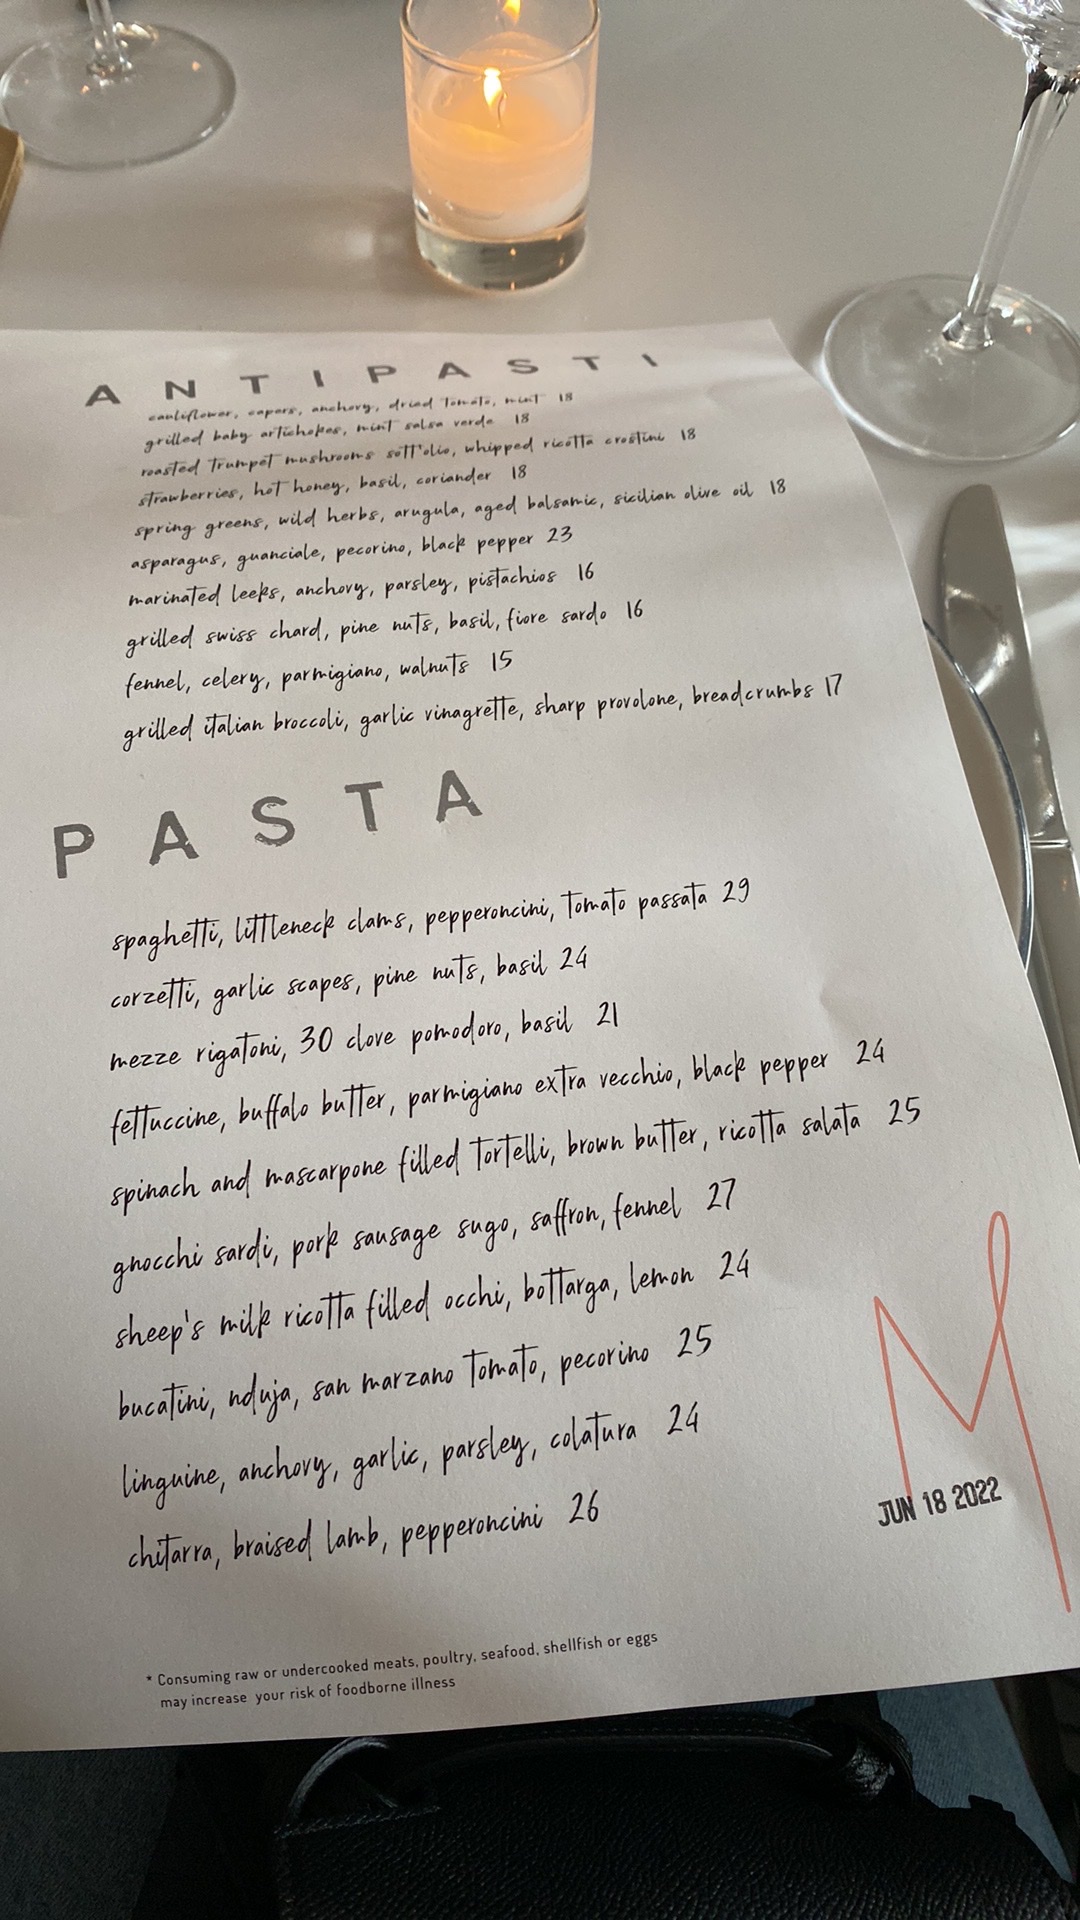 ANTIPASTI
cauliflower, capers, anchovy, dried tomato, mint 18
grilled baby artichokes, mint salsa verde 18
roasted trumpet mushrooms sott'olio, whipped ricotta crostini 18
strawberries, hot honey, basil, coriander 18
spring greens, wild herbs, arugula, aged balsamic, sicilian olive oil 18
asparagus, guanciale, pecorino, black pepper 23
marinated leeks, anchovy, parsley, pistachios 16
grilled swiss chard, pine nuts, basil, fiore sardo 16
fennel, celery, parmigiano, walnuts 15
grilled italian broccoli, garlic vinagrette, sharp provolone, breadcrumbs 17
PASTA
spaghetti, littleneck clams, pepperoncini, tomato passata 29
corzetti, garlic scapes, pine nuts, basil 24
mezze rigatoni, 30 clove pomodoro, basil 21
fettuccine, buffalo butter, parmigiano extra vecchio, black pepper 24
spinach and mascarpone filled tortelli, brown butter, ricotta salata 25
gnocchi sardi, pork sausage sugo, saffron, fennel 27
sheep's milk ricotta filled occhi, bottarga, lemon 24
bucatini, nduja, san marzano tomato, pecorino 25
linguine, anchovy, garlic, parsley, colatura 24
chitarra, braised lamb, pepperoncini 26
M
JUN 18 2022
* Consuming raw or undercooked meats, poultry, seafood, shellfish or eggs
may increase your risk of foodborne illness